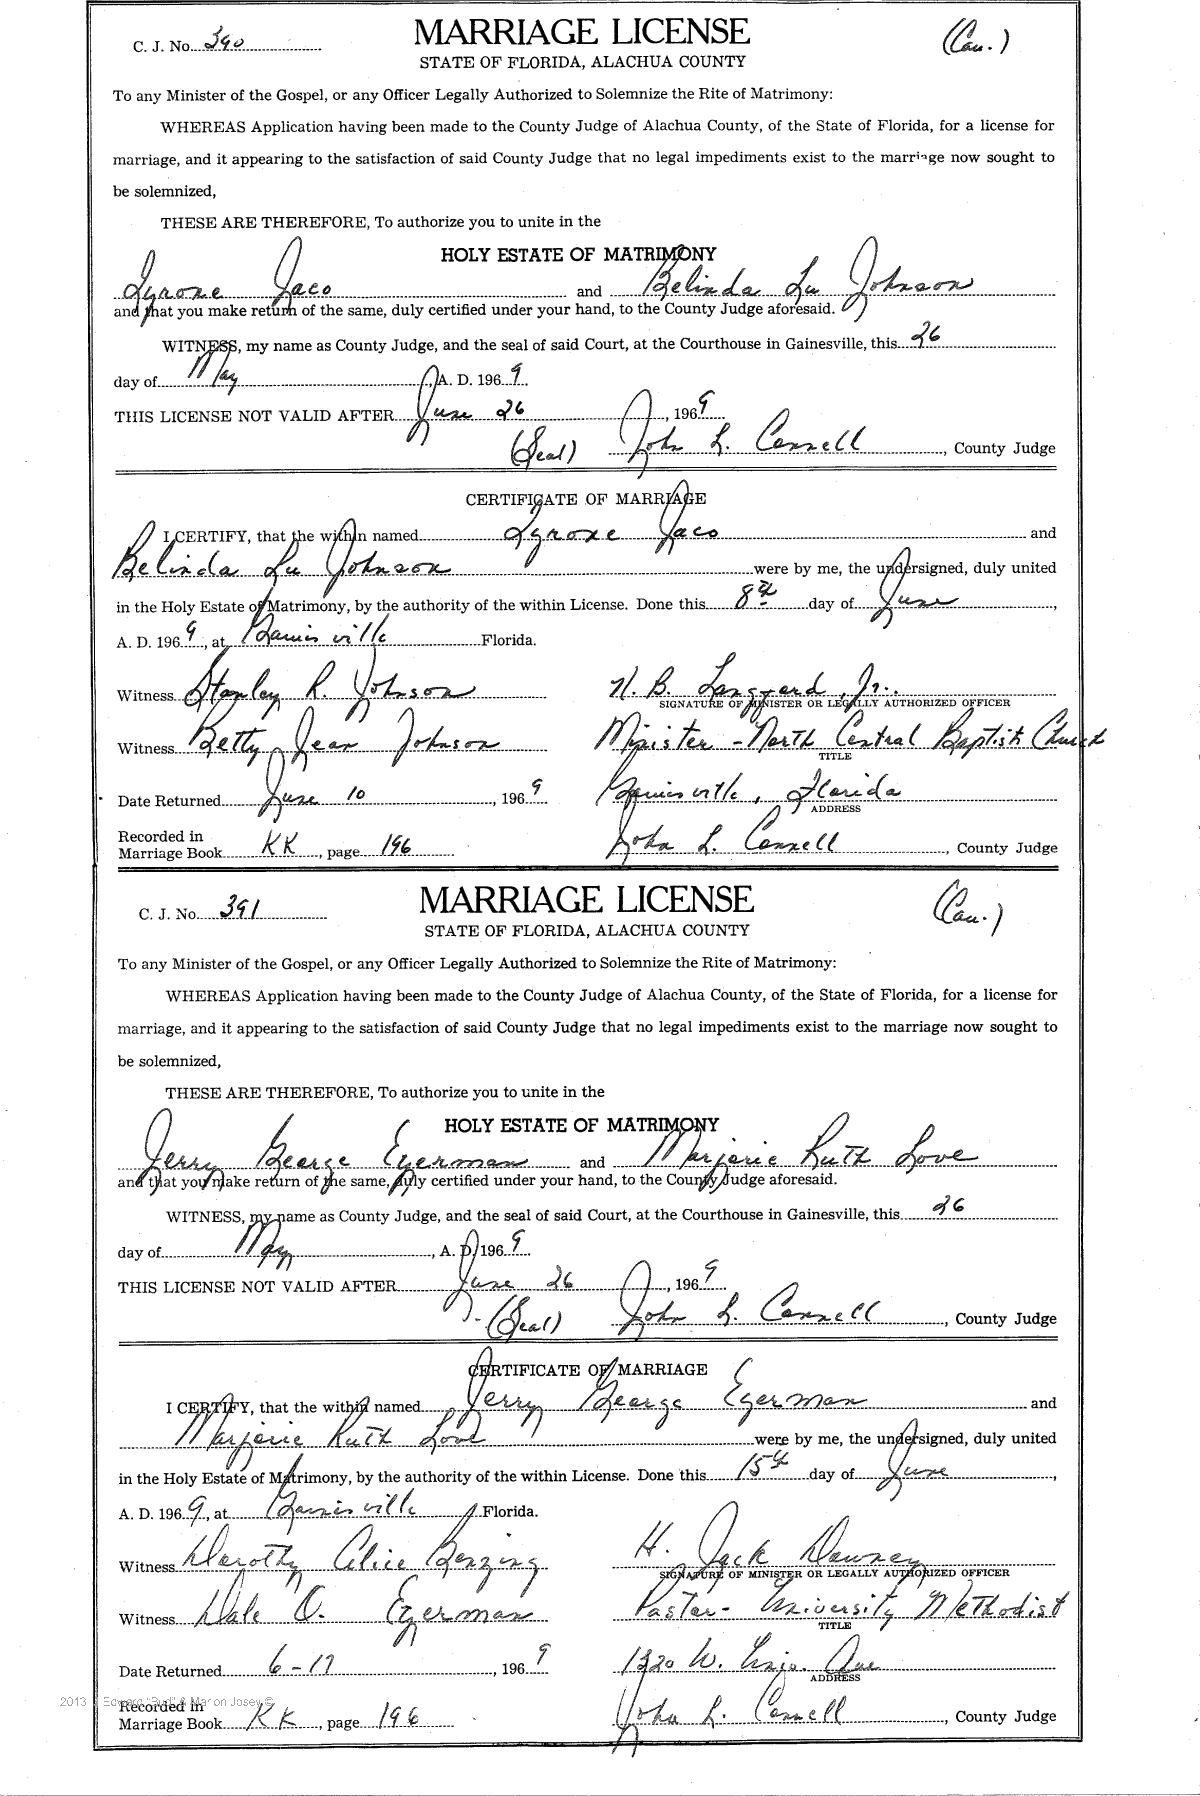 C. J. No. 390 MARRIAGE LICENSE (Cau.)
STATE OF FLORIDA, ALACHUA COUNTY
To any Minister of the Gospel, or any Officer Legally Authorized to Solemnize the Rite of Matrimony:
WHEREAS Application having been made to the County Judge of Alachua County, of the State of Florida, for a license for
marriage, and it appearing to the satisfaction of said County Judge that no legal impediments exist to the marriage now sought to
be solemnized,
THESE ARE THEREFORE, To authorize you to unite in the
HOLY ESTATE OF MATRIMONY
Tyrone Jaco and Belinda Lu Johnson
and that you make return of the same, duly certified under your hand, to the County Judge aforesaid.
WITNESS, my name as County Judge, and the seal of said Court, at the Courthouse in Gainesville, this 26
day of May, A. D. 1969.
THIS LICENSE NOT VALID AFTER June 26, 1969
(Seal) John L. Connell, County Judge
CERTIFICATE OF MARRIAGE
I CERTIFY, that the within named Tyrone Jaco and
Belinda Lu Johnson were by me, the undersigned, duly united
in the Holy Estate of Matrimony, by the authority of the within License. Done this 8th day of June,
A. D. 1969, at Gainesville Florida.
Witness Stanley R. Johnson H. B. Langford, Jr.
SIGNATURE OF MINISTER OR LEGALLY AUTHORIZED OFFICER
Witness Betty Jean Johnson Minister - North Central Baptist Church
TITLE
Date Returned June 10, 1969 Gainesville, Florida
ADDRESS
Recorded in
Marriage Book KK, page 196 John L. Connell, County Judge
C. J. No. 391 MARRIAGE LICENSE (Cau.)
STATE OF FLORIDA, ALACHUA COUNTY
To any Minister of the Gospel, or any Officer Legally Authorized to Solemnize the Rite of Matrimony:
WHEREAS Application having been made to the County Judge of Alachua County, of the State of Florida, for a license for
marriage, and it appearing to the satisfaction of said County Judge that no legal impediments exist to the marriage now sought to
be solemnized,
THESE ARE THEREFORE, To authorize you to unite in the
HOLY ESTATE OF MATRIMONY
Jerry George Egerman and Marjorie Ruth Love
and that you make return of the same, duly certified under your hand, to the County Judge aforesaid.
WITNESS, my name as County Judge, and the seal of said Court, at the Courthouse in Gainesville, this 26
day of May, A. D. 1969.
THIS LICENSE NOT VALID AFTER June 26, 1969
(Seal) John L. Connell, County Judge
CERTIFICATE OF MARRIAGE
I CERTIFY, that the within named Jerry George Egerman and
Marjorie Ruth Love were by me, the undersigned, duly united
in the Holy Estate of Matrimony, by the authority of the within License. Done this 15th day of June,
A. D. 1969, at Gainesville, Florida.
Witness Dorothy Alice Benzing H. Jack Downey
SIGNATURE OF MINISTER OR LEGALLY AUTHORIZED OFFICER
Witness Dale O. Egerman Pastor - University Methodist
TITLE
Date Returned 6-17, 1969 1320 W. Univ. Ave
ADDRESS
2013 Edward "Bud" & Marion Josey ©
Recorded in
Marriage Book KK, page 196 John L. Connell, County Judge